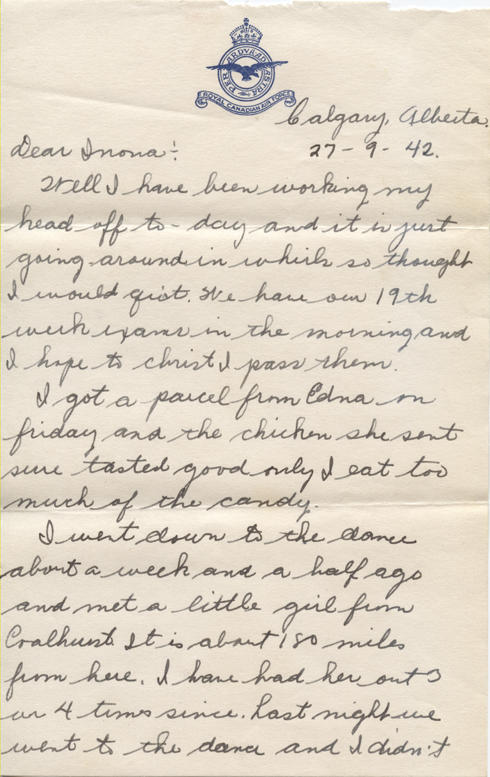 PER ARDVA AD ASTRA
ROYAL CANADIAN AIR FORCE
Calgary, Alberta.
Dear Inona:
27-9-42.
Well I have been working my
head off to-day and it is just
going around in whirls so thought
I would quit. We have our 19th
week exams in the morning and
I hope to christ I pass them.
I got a parcel from Edna on
friday and the chicken she sent
sure tasted good only I eat too
much of the candy.
I went down to the dance
about a week and a half ago
and met a little girl from
Coalhurst. It is about 180 miles
from here. I have had her out 3
or 4 times since. Last night we
went to the dance and I didn't